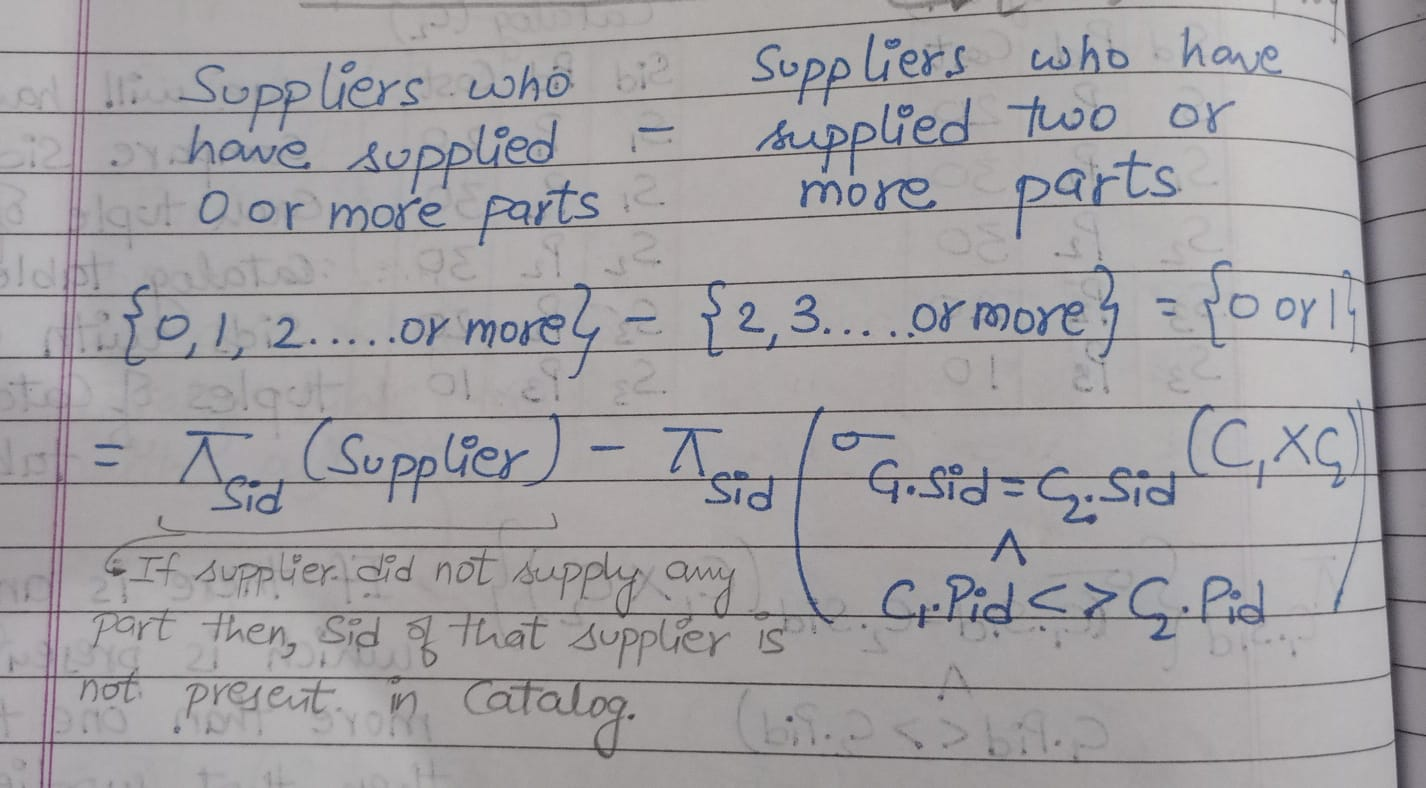 Suppliers who have supplied 0 or more parts – Suppliers who have supplied two or more parts
{0, 1, 2.....or more} – {2, 3.....or more} = {0 or 1}
= π Sid (Supplier) – π Sid (σ C₁.Sid = C₂.Sid ∧ C₁.Pid <> C₂.Pid (C₁ X C₂))
If supplier did not supply any
part then, Sid of that supplier is
not present in Catalog.